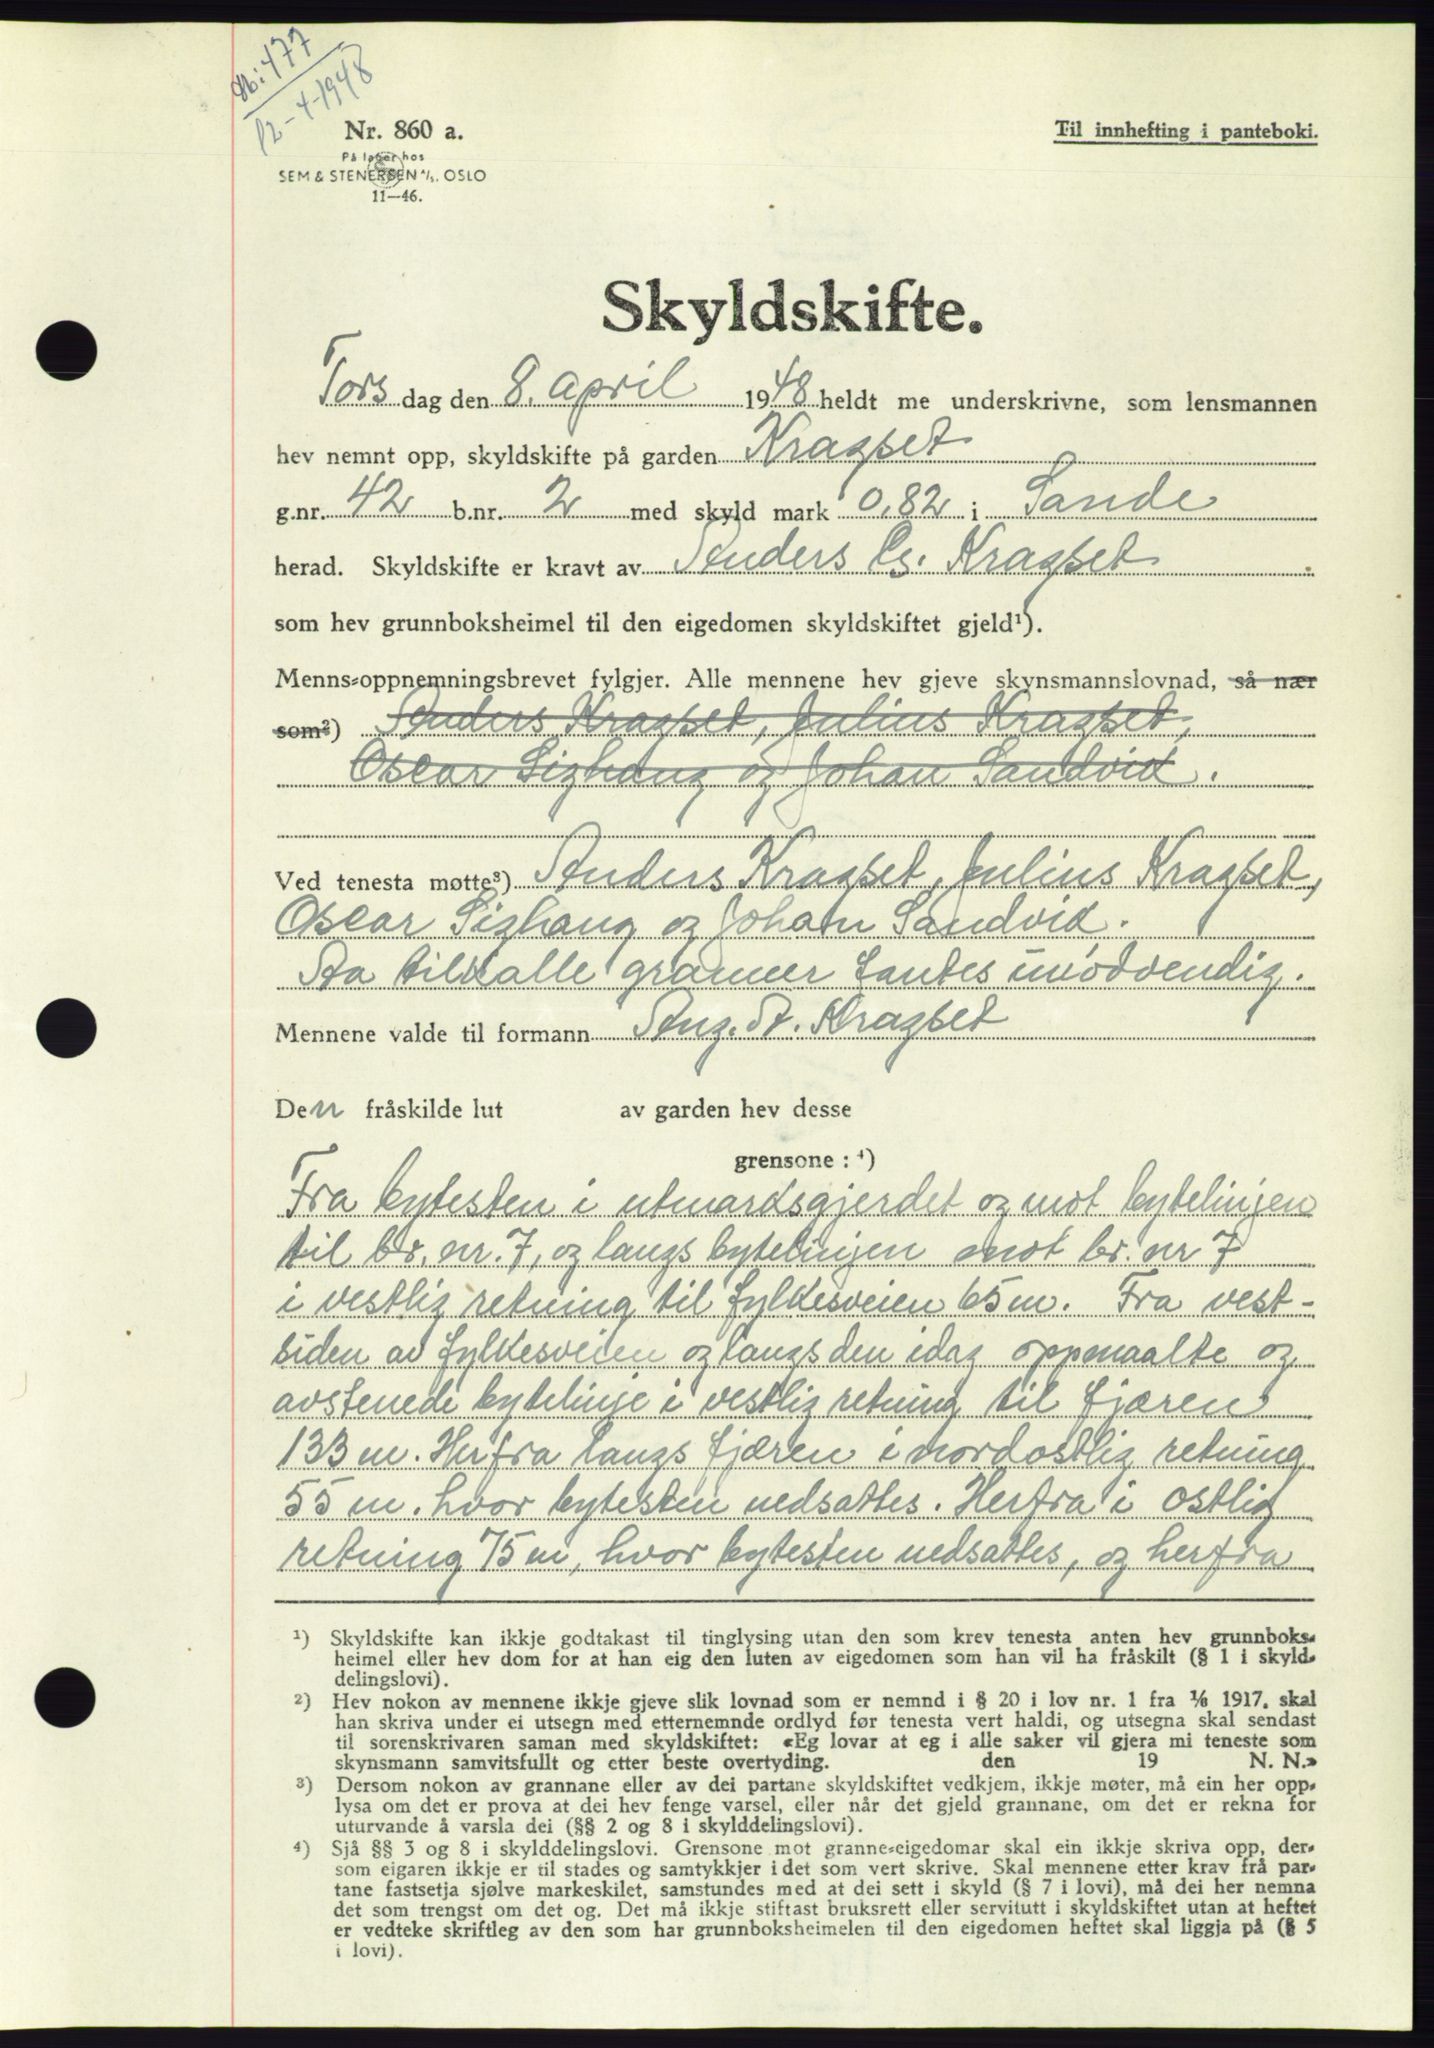 db: 477
12-4-1948
Nr. 860 a.
På lager hos
SEM & STENERSEN A/S. OSLO
11—46.
Til innhefting i panteboki.
Skyldskifte.
Tors dag den 8. april 1948 heldt me underskrivne, som lensmannen
hev nemnt opp, skyldskifte på garden Kragset
g.nr. 42 b.nr. 2 med skyld mark 0,82 i Sande
herad. Skyldskifte er kravt av Anders Kragset
som hev grunnboksheimel til den eigedomen skyldskiftet gjeld¹).
Menns-oppnemningsbrevet fylgjer. Alle mennene hev gjeve skynsmannslovnad, så nær
som²) Anders Kragset, Julius Kragset,
Oscar Sighaug og Johan Sandvik.
Ved tenesta møtte³) Anders Kragset, Julius Kragset,
Oscar Sighaug og Johan Sandvik.
Aa tilkalle granner fantes unødvendig.
Mennene valde til formann Aug. A. Kragset
Den fråskilde lut av garden hev desse
grensone : ⁴)
Fra bytesten i utmarksgjerdet og mot bytelinjen
til br. nr. 7, og langs bytelinjen mot br. nr 7
i vestlig retning til fylkesveien 65 m. Fra vest-
siden av fylkesveien og langs den idag oppmaalte og
avstenede bytelinje i vestlig retning til fjæren
133 m. Herfra langs fjæren i nordostlig retning
55 m. hvor bytesten nedsattes. Herfra i ostlig
retning 75 m, hvor bytesten nedsattes, og herfra
¹) Skyldskifte kan ikkje godtakast til tinglysing utan den som krev tenesta anten hev grunnboks-
heimel eller hev dom for at han eig den luten av eigedomen som han vil ha fråskilt (§ 1 i skyld-
delingslovi).
²) Hev nokon av mennene ikkje gjeve slik lovnad som er nemnd i § 20 i lov nr. 1 fra 1/6 1917, skal
han skriva under ei utsegn med etternemnde ordlyd før tenesta vert haldi, og utsegna skal sendast
til sorenskrivaren saman med skyldskiftet: «Eg lovar at eg i alle saker vil gjera mi teneste som
skynsmann samvitsfullt og etter beste overtyding. den 19 N. N.»
³) Dersom nokon av grannane eller av dei partane skyldskiftet vedkjem, ikkje møter, må ein her opp-
lysa om det er prova at dei hev fenge varsel, eller når det gjeld grannane, om det er rekna for
uturvande å varsla dei (§§ 2 og 8 i skylddelingslovi).
⁴) Sjå §§ 3 og 8 i skylddelingslovi. Grensone mot granne-eigedomar skal ein ikkje skriva opp, der-
som eigaren ikkje er til stades og samtykkjer i det som vert skrive. Skal mennene etter krav frå par-
tane fastsetja sjølve markeskilet, samstundes med at dei sett i skyld (§ 7 i lovi), må dei her nemna
det som trengst om det og. Det må ikkje stiftast bruksrett eller servitutt i skyldskiftet utan at heftet
er vedteke skriftleg av den som har grunnboksheimelen til den eigedomen heftet skal liggja på (§ 5
i lovi).